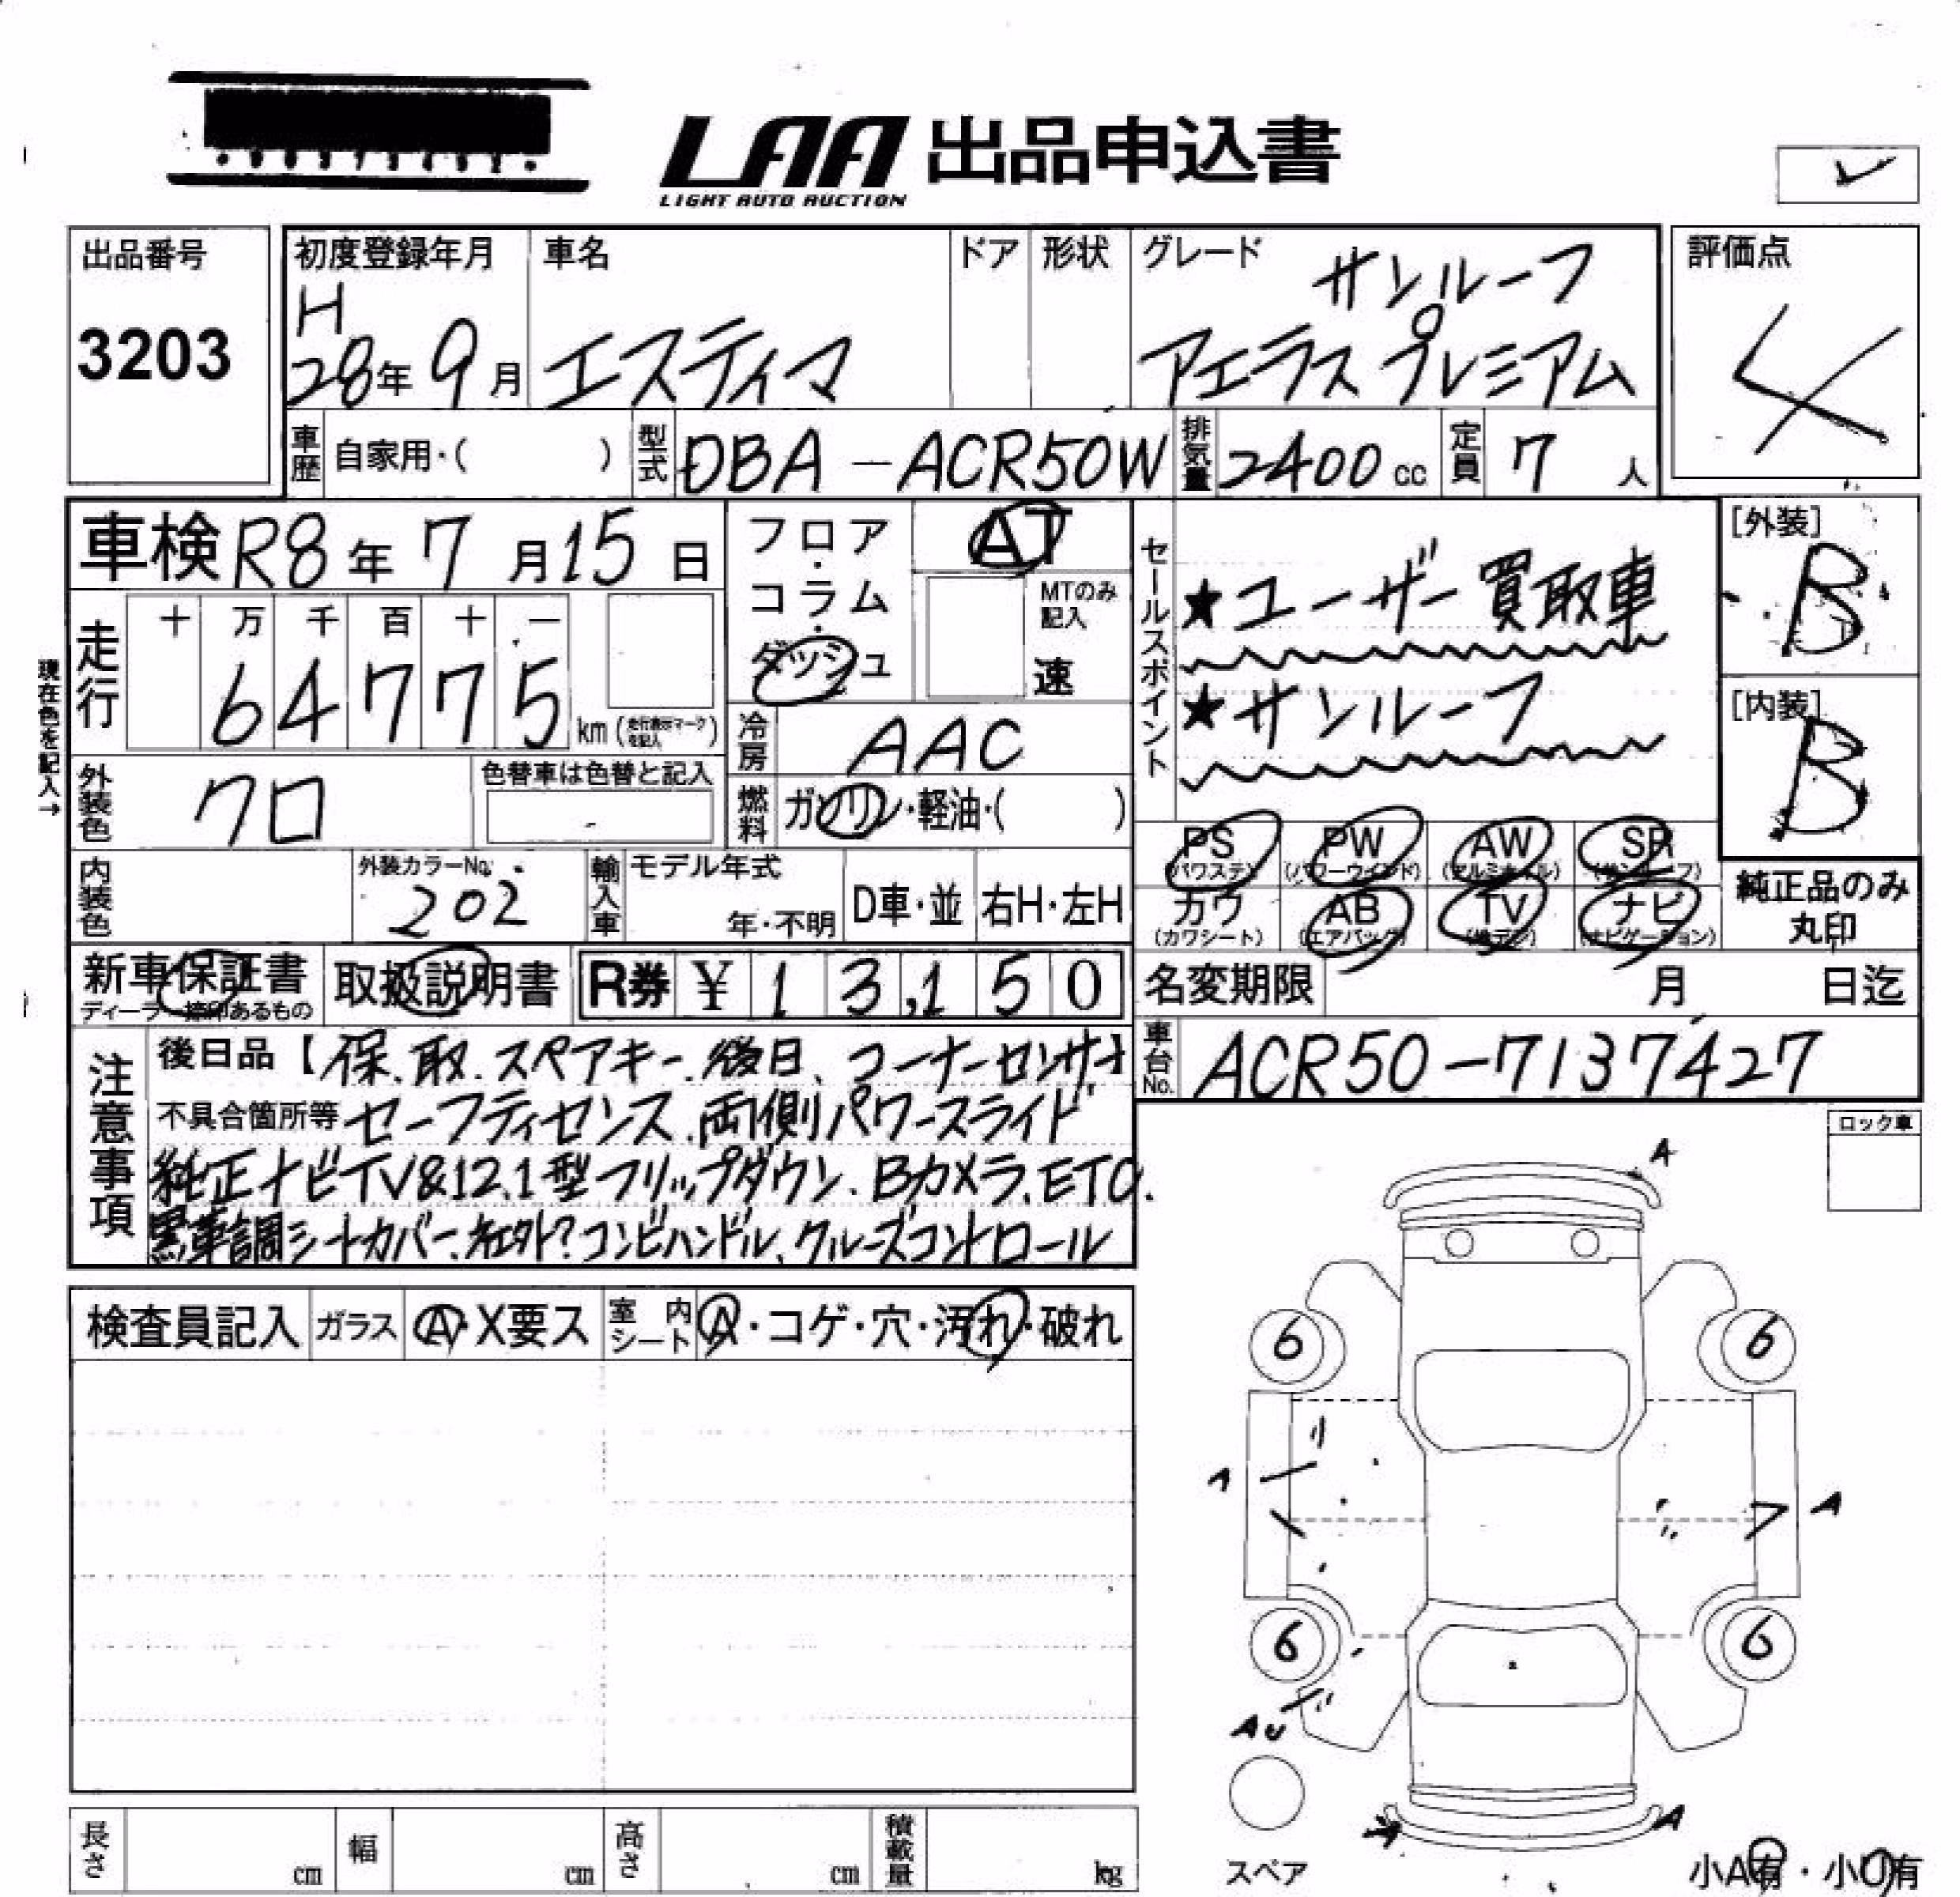 LAA 出品申込書
LIGHT AUTO AUCTION
出品番号
3203
初度登録年月
H
28年 9月
車名
エスティマ
ドア
形状
グレード
サンルーフ
アエラス プレミアム
評価点
4
車歴 自家用・( )
型式 DBA-ACR50W
排気量 2400 cc
定員 7 人
車検 R8年 7月15日
フロア・コラム・ダッシュ
AT
MTのみ記入
速
セールスポイント
★ユーザー買取車
★サンルーフ
[外装]
B
[内装]
B
現在色を記入→
走行
十 万 千 百 十 一
6 4 7 7 5 km (走行表示マークを記入)
冷房 AAC
外装色 クロ
色替車は色替と記入
燃料 ガソリン・軽油・( )
PS (パワステ)
PW (パワーウインド)
AW (アルミホイル)
SR (サンルーフ)
カワ (カワシート)
AB (エアバッグ)
TV (地デジ)
ナビ (ナビゲーション)
純正品のみ
丸印
内装色
外装カラーNo.
202
輸入車
モデル年式
年・不明
D車・並
右H・左H
新車保証書
ディーラー捺印あるもの
取扱説明書
R券 ¥ 1 3,1 5 0
名変期限 月 日迄
車台No. ACR50-7137427
注意事項
後日品【保、取、スペアキー、後日、コーナーセンサー】
不具合箇所等 セーフティセンス、両側パワースライド
純正ナビTV&12.1型フリップダウン、Bカメラ、ETC、
黒革調シートカバー、社外?コンビハンドル、クルーズコントロール
ロック車
検査員記入
ガラス A・X要ス
室内シート A・コゲ・穴・汚れ・破れ
A
6 6
A A
6 6
AU
A A
スペア
小A有・小U有
長さ cm
幅 cm
高さ cm
積載量 kg